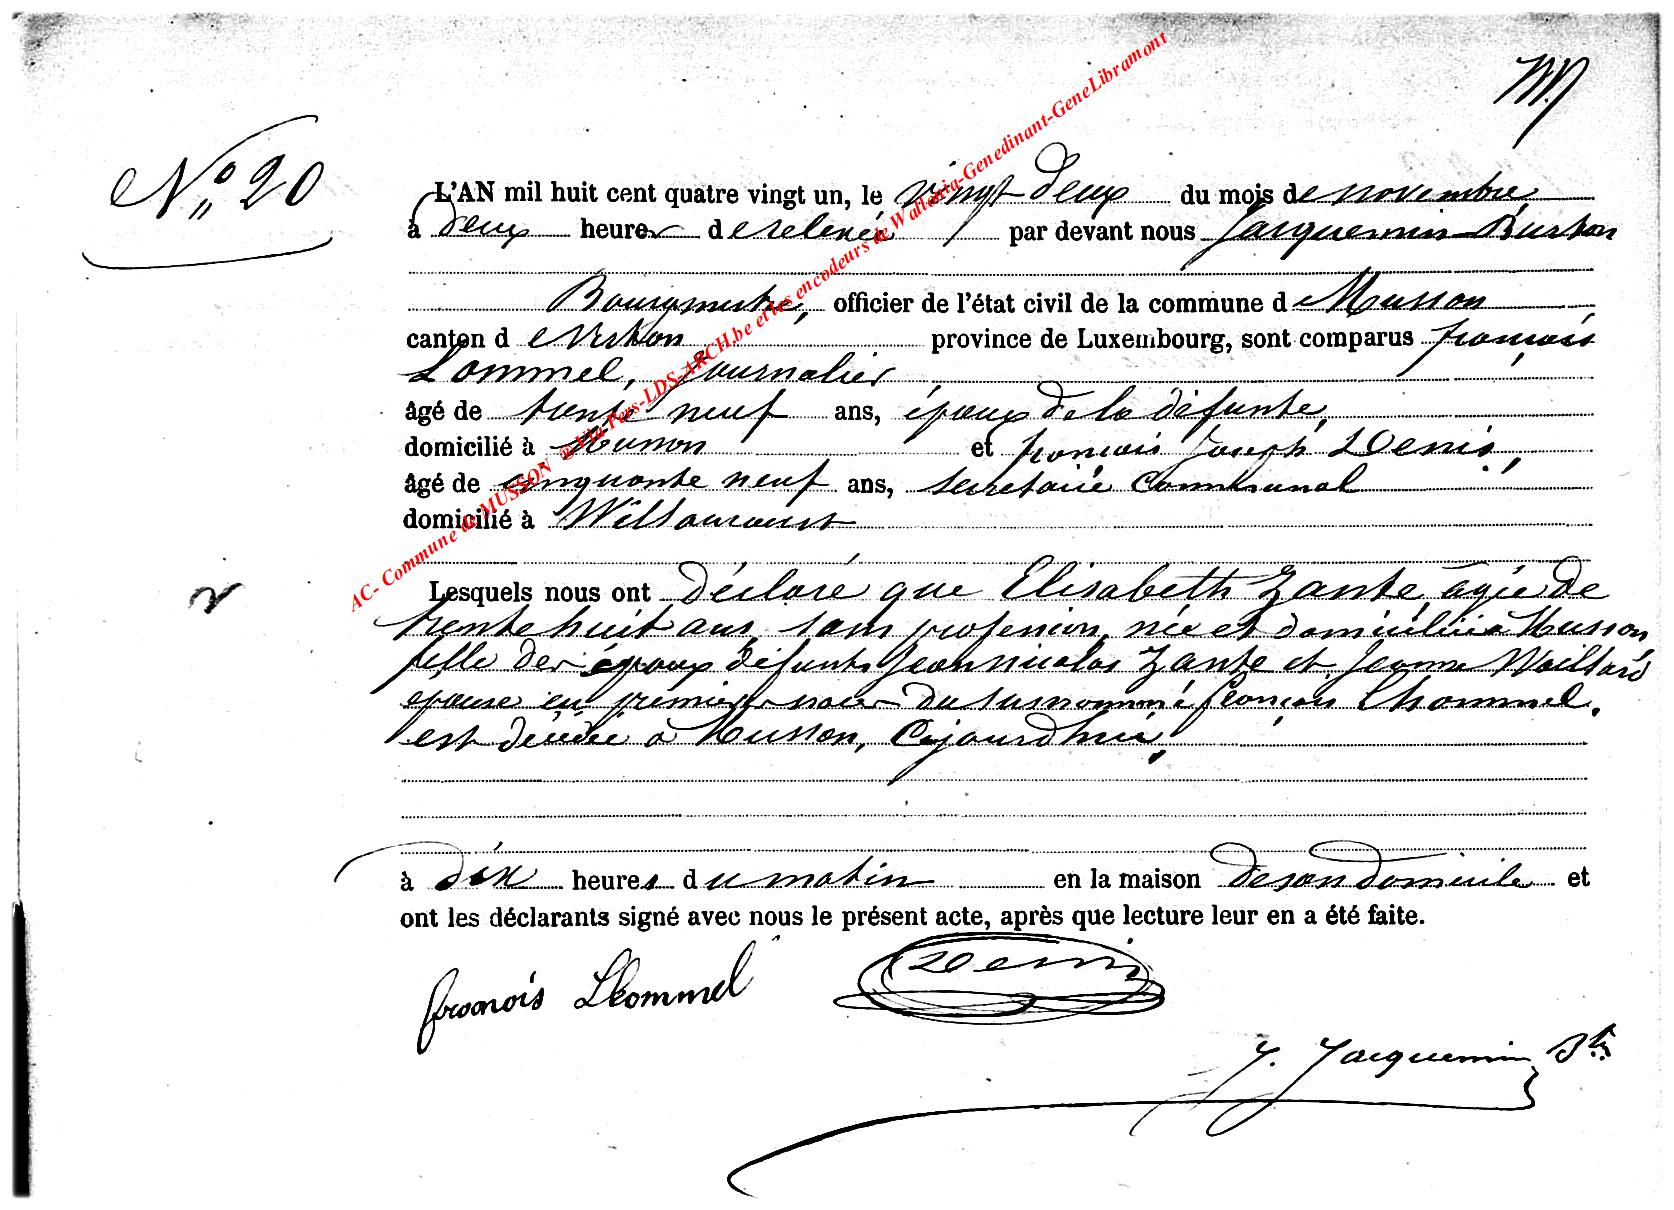 N° 20
L'AN mil huit cent quatre vingt un, le vingt deux du mois de novembre
à deux heures de relevée par devant nous Jacquemin Burton
Bourgmestre, officier de l'état civil de la commune de Musson
canton de Virton province de Luxembourg, sont comparus françois
Lommel, Journalier
âgé de trente neuf ans, époux de la défunte,
domicilié à Musson et françois Joseph Denis,
âgé de cinquante neuf ans, secretaire Communal
domicilié à Willancourt
Lesquels nous ont déclaré que Elisabeth Zante, agée de
trente huit ans, sans profession, née et domiciliée à Musson,
fille des époux défunts Jean nicolas Zante et Jeanne Waillard
epouse en premières noces du susnommé françois Lhommel.
est décédée à Musson, Cejourd'hui,
à dix heures du matin en la maison de son domicile et
ont les déclarants signé avec nous le présent acte, après que lecture leur en a été faite.
françois Lhommel Denis
J. Jacquemin Btn
AC- Commune de MUSSON @Via-Pers-LDS-ARCH.be et les encodeurs de Wallonia-Genedinant-GeneLibramont